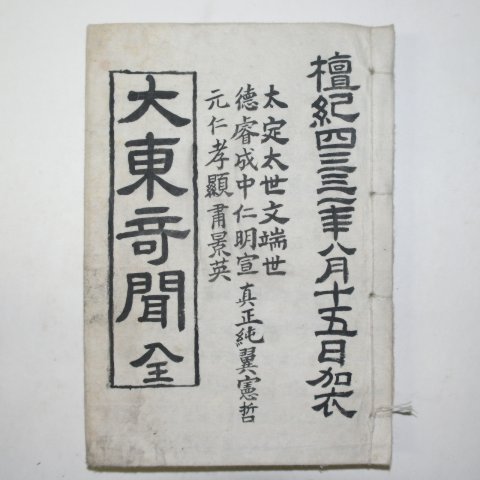 檀紀四三三一年八月十五日加衣
太定太世文端世
德睿成中仁明宣真正純翼憲哲
元仁孝顯肅景英
大東奇聞 全